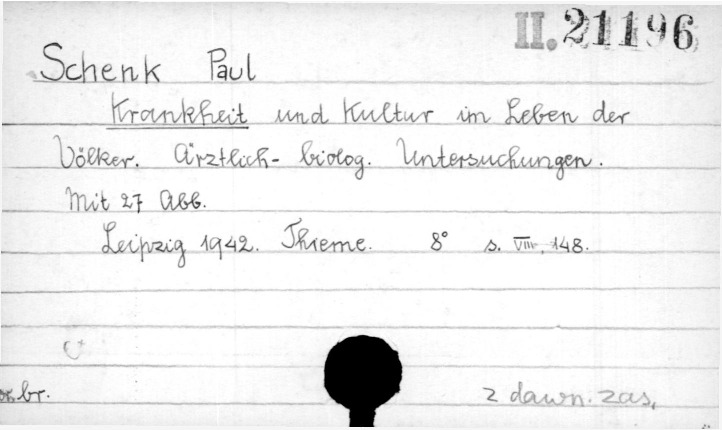 II. 21196
Schenk Paul
Krankheit und Kultur im Leben der
Völker. Ärztlich-biolog. Untersuchungen.
Mit 27 Abb.
Leipzig 1942. Thieme. 8° s. VIII, 148.
br.
z dawn. zas.